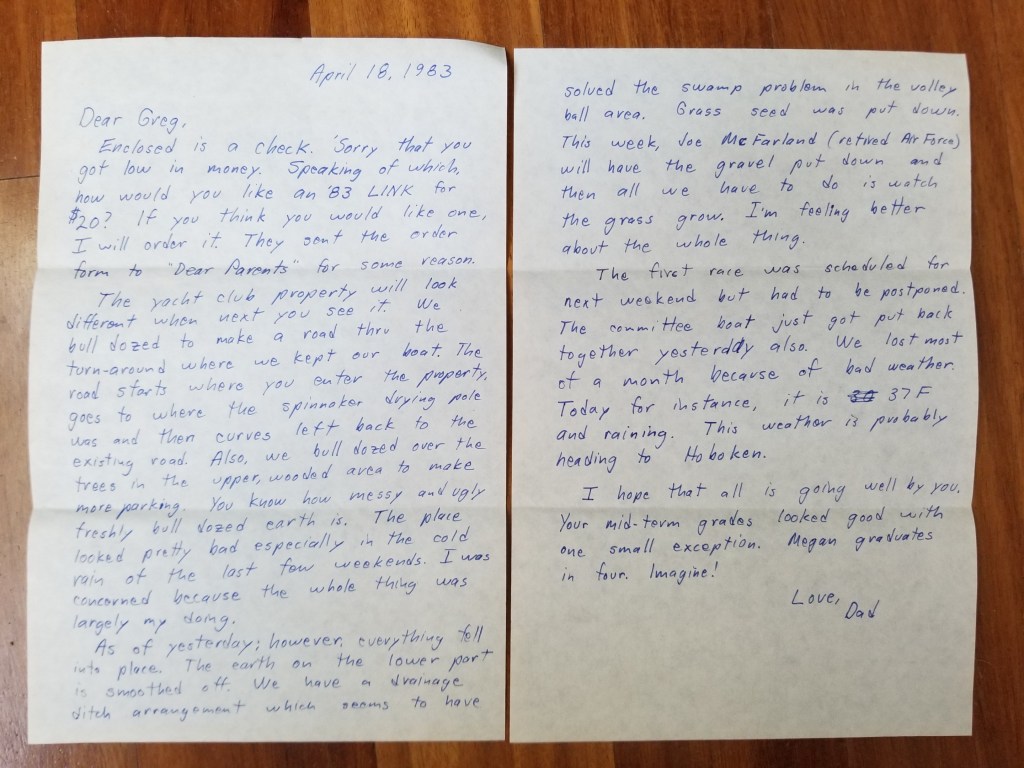 April 18, 1983
Dear Greg,
Enclosed is a check. Sorry that you
got low in money. Speaking of which,
how would you like an '83 LINK for
$20? If you think you would like one,
I will order it. They sent the order
form to "Dear Parents" for some reason.
The yacht club property will look
different when next you see it. We
bull dozed to make a road thru the
turn-around where we kept our boat. The
road starts where you enter the property,
goes to where the spinnaker drying pole
was and then curves left back to the
existing road. Also, we bull dozed over the
trees in the upper, wooded area to make
more parking. You know how messy and ugly
freshly bull dozed earth is. The place
looked pretty bad especially in the cold
rain of the last few weekends. I was
concerned because the whole thing was
largely my doing.
As of yesterday; however, everything fell
into place. The earth on the lower part
is smoothed off. We have a drainage
ditch arrangement which seems to have
solved the swamp problem in the volley
ball area. Grass seed was put down.
This week, Joe McFarland (retired Air Force)
will have the gravel put down and
then all we have to do is watch
the grass grow. I'm feeling better
about the whole thing.
The first race was scheduled for
next weekend but had to be postponed.
The committee boat just got put back
together yesterday also. We lost most
of a month because of bad weather.
Today for instance, it is 37F
and raining. This weather is probably
heading to Hoboken.
I hope that all is going well by you.
Your mid-term grades looked good with
one small exception. Megan graduates
in four. Imagine!
Love,
Dad